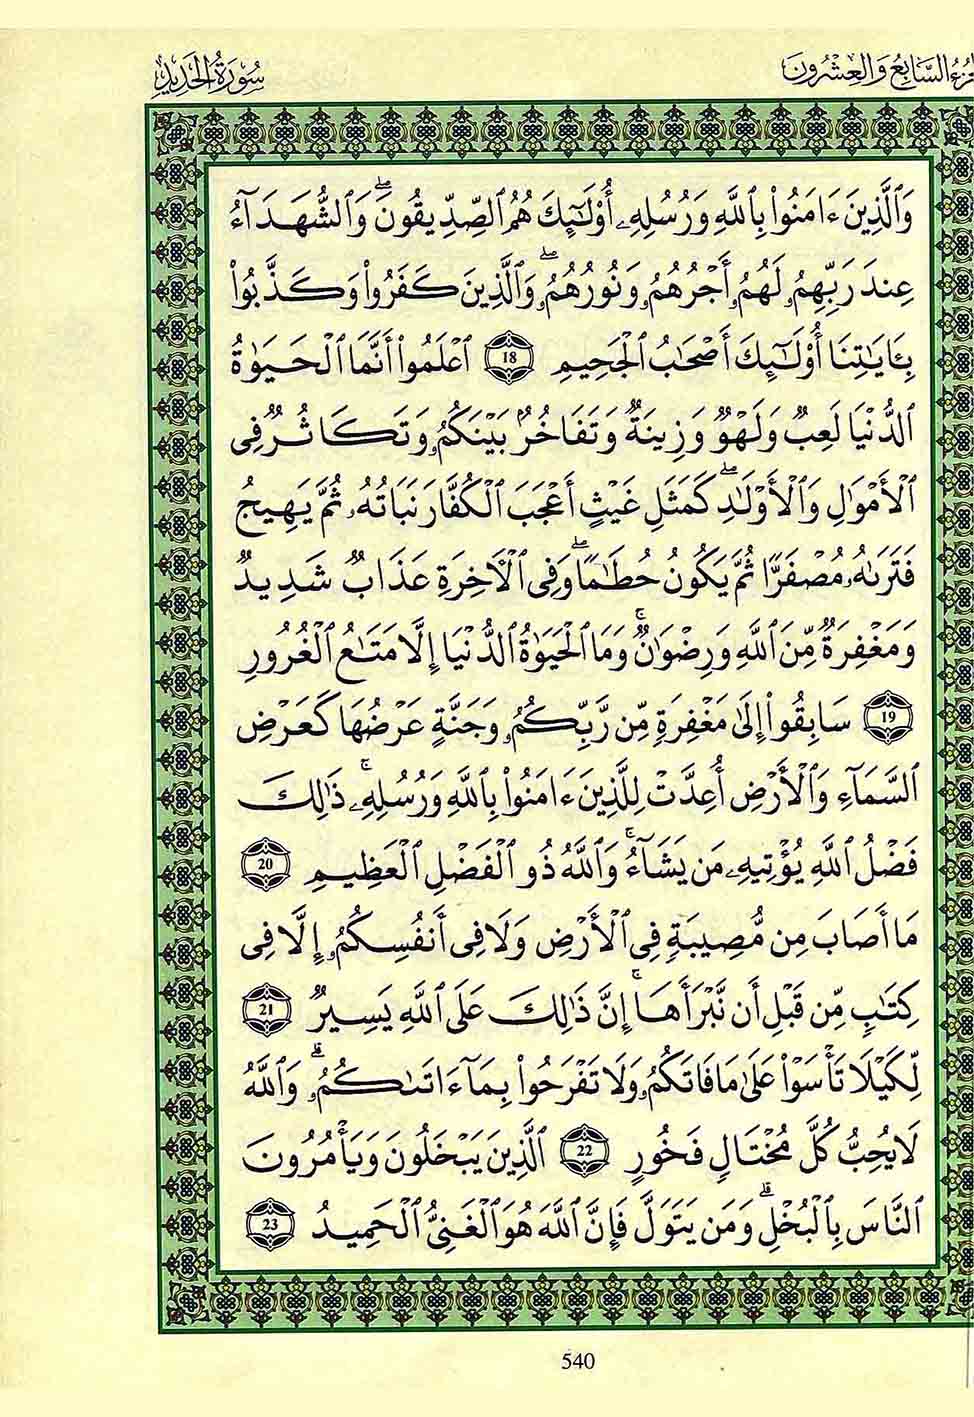 الجزء السابع والعشرون
سورة الحديد
وَٱلَّذِينَ ءَامَنُوا۟ بِٱللَّهِ وَرُسُلِهِۦ أُو۟لَـٰٓئِكَ هُمُ ٱلصِّدِّيقُونَۖ وَٱلشُّهَدَآءُ
عِندَ رَبِّهِمُۥ لَهُمُۥ أَجْرُهُمُۥ وَنُورُهُمُۥۖ وَٱلَّذِينَ كَفَرُوا۟ وَكَذَّبُوا۟
بِـَٔايَـٰتِنَا أُو۟لَـٰٓئِكَ أَصْحَـٰبُ ٱلْجَحِيمِ 18 ٱعْلَمُوا۟ أَنَّمَا ٱلْحَيَوٰةُ
ٱلدُّنْيَا لَعِبٌ وَلَهْوٌ وَزِينَةٌ وَتَفَاخُرٌۢ بَيْنَكُمُۥ وَتَكَاثُرٌ فِى
ٱلْأَمْوَٰلِ وَٱلْأَوْلَـٰدِۖ كَمَثَلِ غَيْثٍ أَعْجَبَ ٱلْكُفَّارَ نَبَاتُهُۥ ثُمَّ يَهِيجُ
فَتَرَىٰهُۥ مُصْفَرًّا ثُمَّ يَكُونُ حُطَـٰمًاۖ وَفِى ٱلْـَٔاخِرَةِ عَذَابٌ شَدِيدٌ
وَمَغْفِرَةٌ مِّنَ ٱللَّهِ وَرِضْوَٰنٌۚ وَمَا ٱلْحَيَوٰةُ ٱلدُّنْيَا إِلَّا مَتَـٰعُ ٱلْغُرُورِ
19 سَابِقُوا۟ إِلَىٰ مَغْفِرَةٍ مِّن رَّبِّكُمُۥ وَجَنَّةٍ عَرْضُهَا كَعَرْضِ
ٱلسَّمَآءِ وَٱلْأَرْضِ أُعِدَّتْ لِلَّذِينَ ءَامَنُوا۟ بِٱللَّهِ وَرُسُلِهِۦۚ ذَٰلِكَ
فَضْلُ ٱللَّهِ يُؤْتِيهِۦ مَن يَشَآءُۚ وَٱللَّهُ ذُو ٱلْفَضْلِ ٱلْعَظِيمِ 20
مَا أَصَابَ مِن مُّصِيبَةٍ فِى ٱلْأَرْضِ وَلَا فِى أَنفُسِكُمُۥ إِلَّا فِى
كِتَـٰبٍ مِّن قَبْلِ أَن نَّبْرَأَهَاۚ إِنَّ ذَٰلِكَ عَلَى ٱللَّهِ يَسِيرٌ 21
لِّكَيْلَا تَأْسَوْا۟ عَلَىٰ مَا فَاتَكُمُۥ وَلَا تَفْرَحُوا۟ بِمَآ ءَاتَىٰكُمُۥۗ وَٱللَّهُ
لَا يُحِبُّ كُلَّ مُخْتَالٍ فَخُورٍ 22 ٱلَّذِينَ يَبْخَلُونَ وَيَأْمُرُونَ
ٱلنَّاسَ بِٱلْبُخْلِۗ وَمَن يَتَوَلَّ فَإِنَّ ٱللَّهَ هُوَ ٱلْغَنِىُّ ٱلْحَمِيدُ 23
540